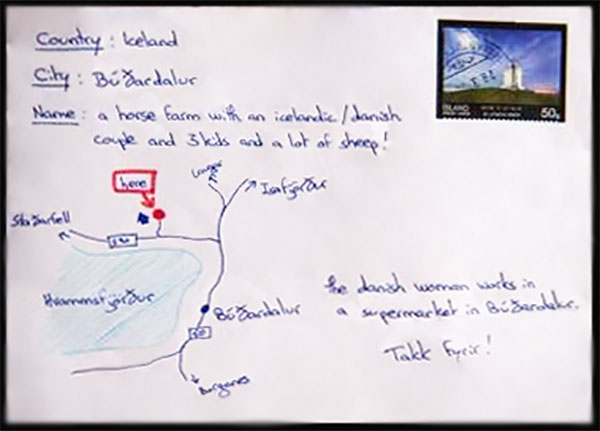 Country : Iceland
City : Búðardalur
Name : a horse farm with an icelandic/danish
couple and 3 kids and a lot of sheep!
ÍSLAND
50g
here
Isafjörður
Staðarfell
590
Hvammsfjörður
Búðardalur
60
Borganes
the danish woman works in
a supermarket in Búðardalur.
Takk fyrir!